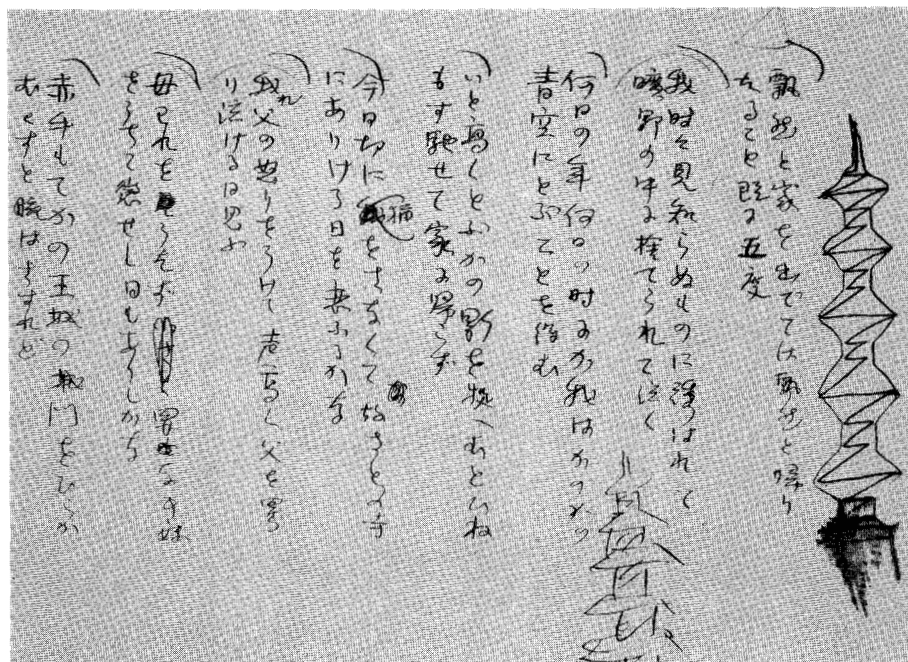 飄然と家を出でては飄然と帰り
たること既に五度
我時々見知らぬものに誘はれて
曠野の中に捨てられて泣く
何日の年何日の時にか我はかの
青空にとぶことを得む
いと高くとぶかの影を捉へむとひね
もす馳せて家に帰らず
今日切に猶をさなくて故さとの寺
にありける日を恋ふるかな
我れ父の怒りをうけて声高く父を罵
り泣ける日思ふ
母われをうたず罪なき妹
をうちて懲せし日もありしかな
赤手もてかの王城の城門をひらか
むとすと腕はさすれど